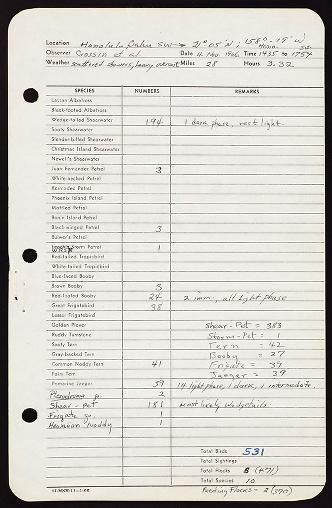 Location Honolulu, Oahu SW → 21° 05' N ; 158° - 15' W
Observer Crossin et al Date 4 Nov. 1966 Time 1435 to 1754
Weather scattered showers, heavy overcast Miles 28 Hours 3.32
SPECIES NUMBERS REMARKS
Laysan Albatross
Black-footed Albatross
Wedge-tailed Shearwater 194 1 dark phase, rest light.
Sooty Shearwater
Slender-billed Shearwater
Christmas Island Shearwater
Newell's Shearwater
Juan Fernandez Petrel 3
White-necked Petrel
Kermadec Petrel
Phoenix Island Petrel
Mottled Petrel
Bonin Island Petrel
Black-winged Petrel 3
Bulwer's Petrel
Storm Petrel 1
Red-tailed Tropicbird
White-tailed Tropicbird
Blue-faced Booby
Brown Booby 3
Red-footed Booby 24 2 imm., all light phase
Great Frigatebird 38
Lesser Frigatebird
Golden Plover Shear-Pet = 383
Ruddy Turnstone Storm-Pet = 1
Sooty Tern Tern = 42
Gray-backed Tern Booby = 27
Common Noddy Tern 41 Frigate = 39
Fairy Tern Jaeger = 39
Pomarine Jaeger 39 14 light phase, 1 dark, 1 intermediate.
Pterodroma sp. 2
Shear-pet 181 most likely wedgetails
Frigate sp. 1
Hawaiian Noddy 1
Total Birds 531
Total Sightings
Total Flocks 8 (471)
Total Species 10
Feeding Flocks - 2 (370)